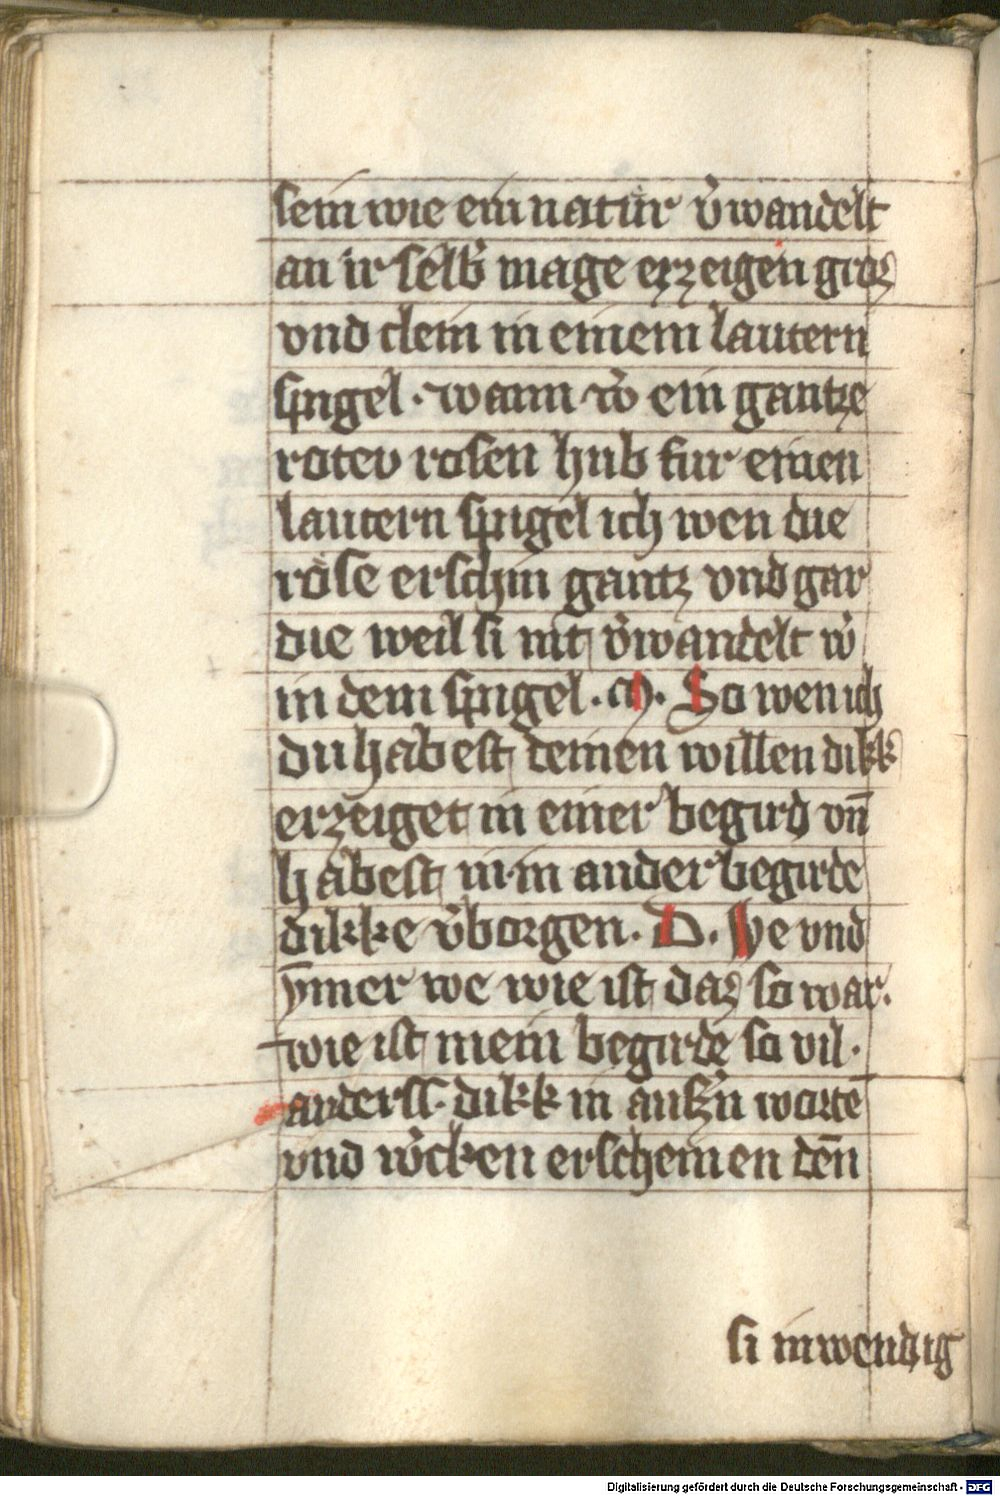 sein wie ein natůr v̓wandelt
an ir selb̓ mage erzeigen groz
vnd clein in einem lautern
spigel · wann w̓ ein gantze
rotev rosen hub fur einen
lautern spigel ich wen die
rose erschin gantz vnd gar
die weil si nit v̓wandelt w̓
in dem spigel . M . So wen ich
du habest deinen willen dikk
erzeiget in einer begird vn̄
habest in in ander begirde
dikke v̓borgen . D . We vnd
ẏmer we wie ist daz so war .
wie ist mein begirde so vil .
anderss . dikk in auſz̓n wortē
vnd w̓cken erscheinen den̄
si inwendig
Digitalisierung gefördert durch die Deutsche Forschungsgemeinschaft - DFG